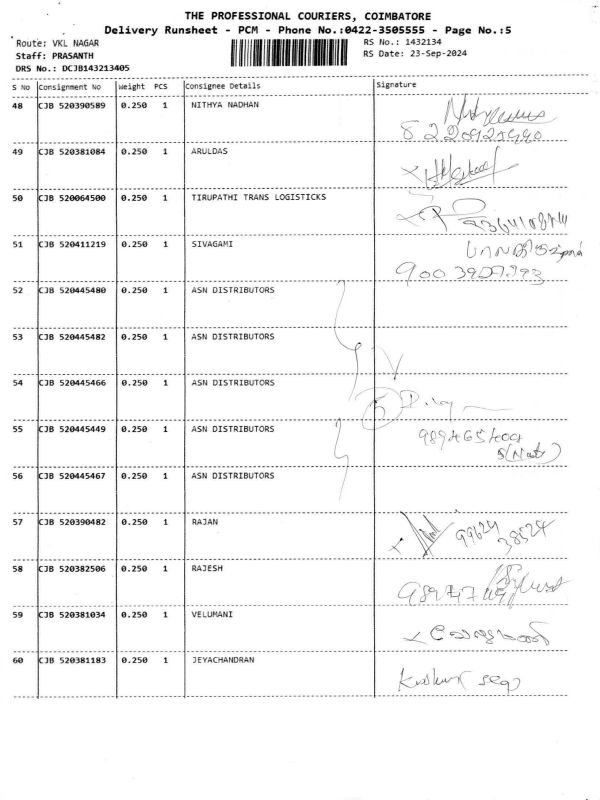 THE PROFESSIONAL COURIERS, COIMBATORE
Delivery Runsheet - PCM - Phone No.:0422-3505555 - Page No.:5
Route: VKL NAGAR
Staff: PRASANTH
DRS No.: DCJB143213405
RS No.: 1432134
RS Date: 23-Sep-2024
S No Consignment No Weight PCS Consignee Details Signature
48 CJB 520390589 0.250 1 NITHYA NADHAN
49 CJB 520381084 0.250 1 ARULDAS
50 CJB 520064500 0.250 1 TIRUPATHI TRANS LOGISTICKS
51 CJB 520411219 0.250 1 SIVAGAMI
52 CJB 520445480 0.250 1 ASN DISTRIBUTORS
53 CJB 520445482 0.250 1 ASN DISTRIBUTORS
54 CJB 520445466 0.250 1 ASN DISTRIBUTORS
5
55 CJB 520445449 0.250 1 ASN DISTRIBUTORS
56 CJB 520445467 0.250 1 ASN DISTRIBUTORS
57 CJB 520390482 0.250 1 RAJAN
99624
38524
58 CJB 520382506 0.250 1 RAJESH
59 CJB 520381034 0.250 1 VELUMANI
60 CJB 520381183 0.250 1 JEYACHANDRAN